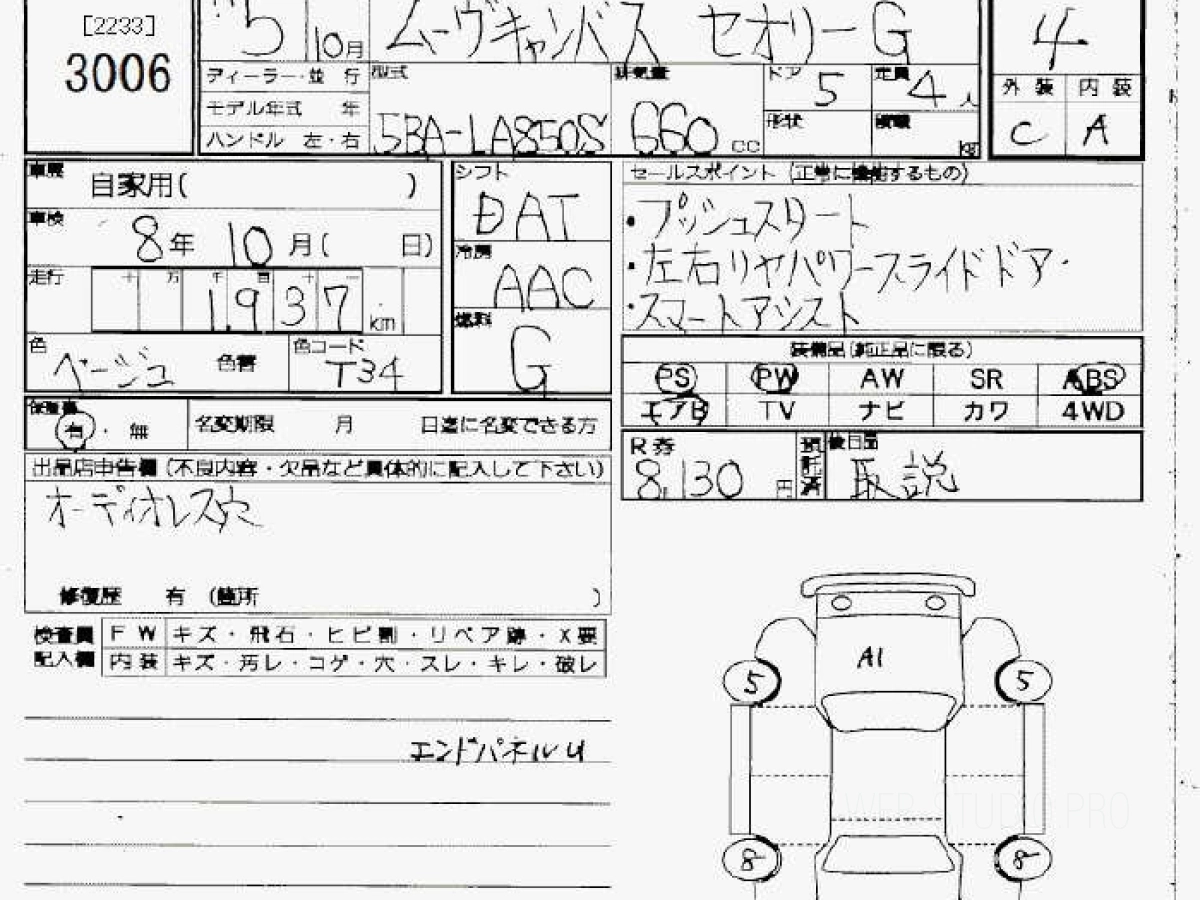 [2233]
3006
5 10月
ムーヴキャンバス セオリーG
4
ディーラー・並 行
モデル年式 年
ハンドル 左・右
型式
5BA-LA850S
排気量
660 cc
ドア 5
定員 4人
形状
積載 kg
外装 内装
C A
車歴
自家用( )
車検
8年 10月( 日)
走行
十 万 千 百 十 一
1,937 km
色
ベージュ
色替
色コード
T34
シフト
DAT
冷房
AAC
燃料
G
セールスポイント (正常に機能するもの)
・プッシュスタート
・左右リヤパワースライドドア・
・スマートアシスト
装備品(純正品に限る)
PS PW AW SR ABS
エアB TV ナビ カワ 4WD
保証書
有・無
名変期限 月 日迄に名変できる方
R券
8,130 円
預託済
後日品
取説
出品店申告欄(不良内容・欠品など具体的に記入して下さい)
オーディオレス穴
修復歴 有 (箇所 )
検査員
記入欄
FW キズ・飛石・ヒビ割・リペア跡・X要
内装 キズ・汚レ・コゲ・穴・スレ・キレ・破レ
エンドパネルU
A1
5 5
8 8
WEB STUDIO PRO